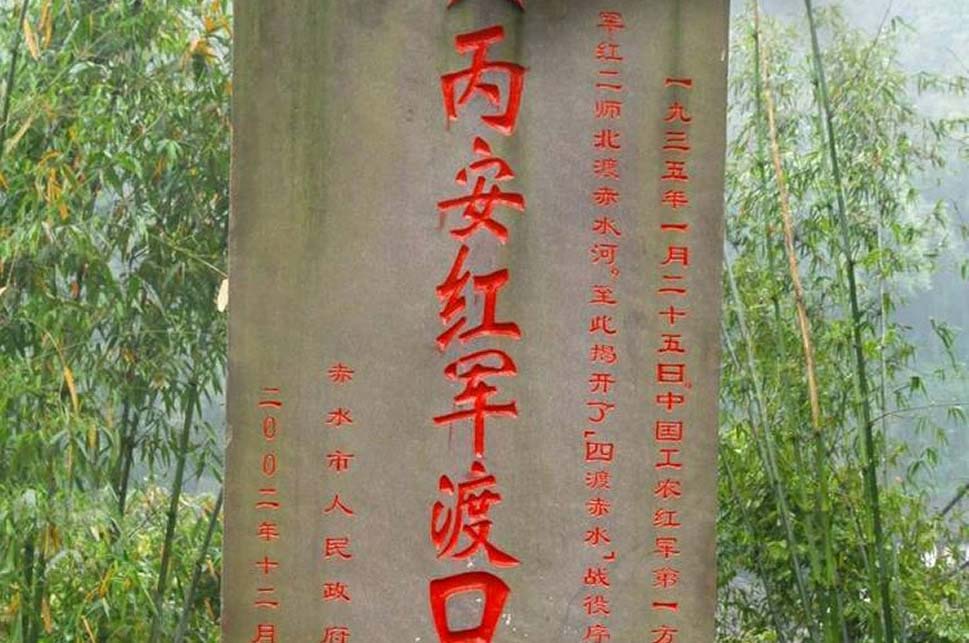 一九三五年一月二十五日。中国工农红军第一方
军红二师北渡赤水河。至此揭开了“四渡赤水”战役序
丙安红军渡口
赤水市人民政府
二00二年十二月